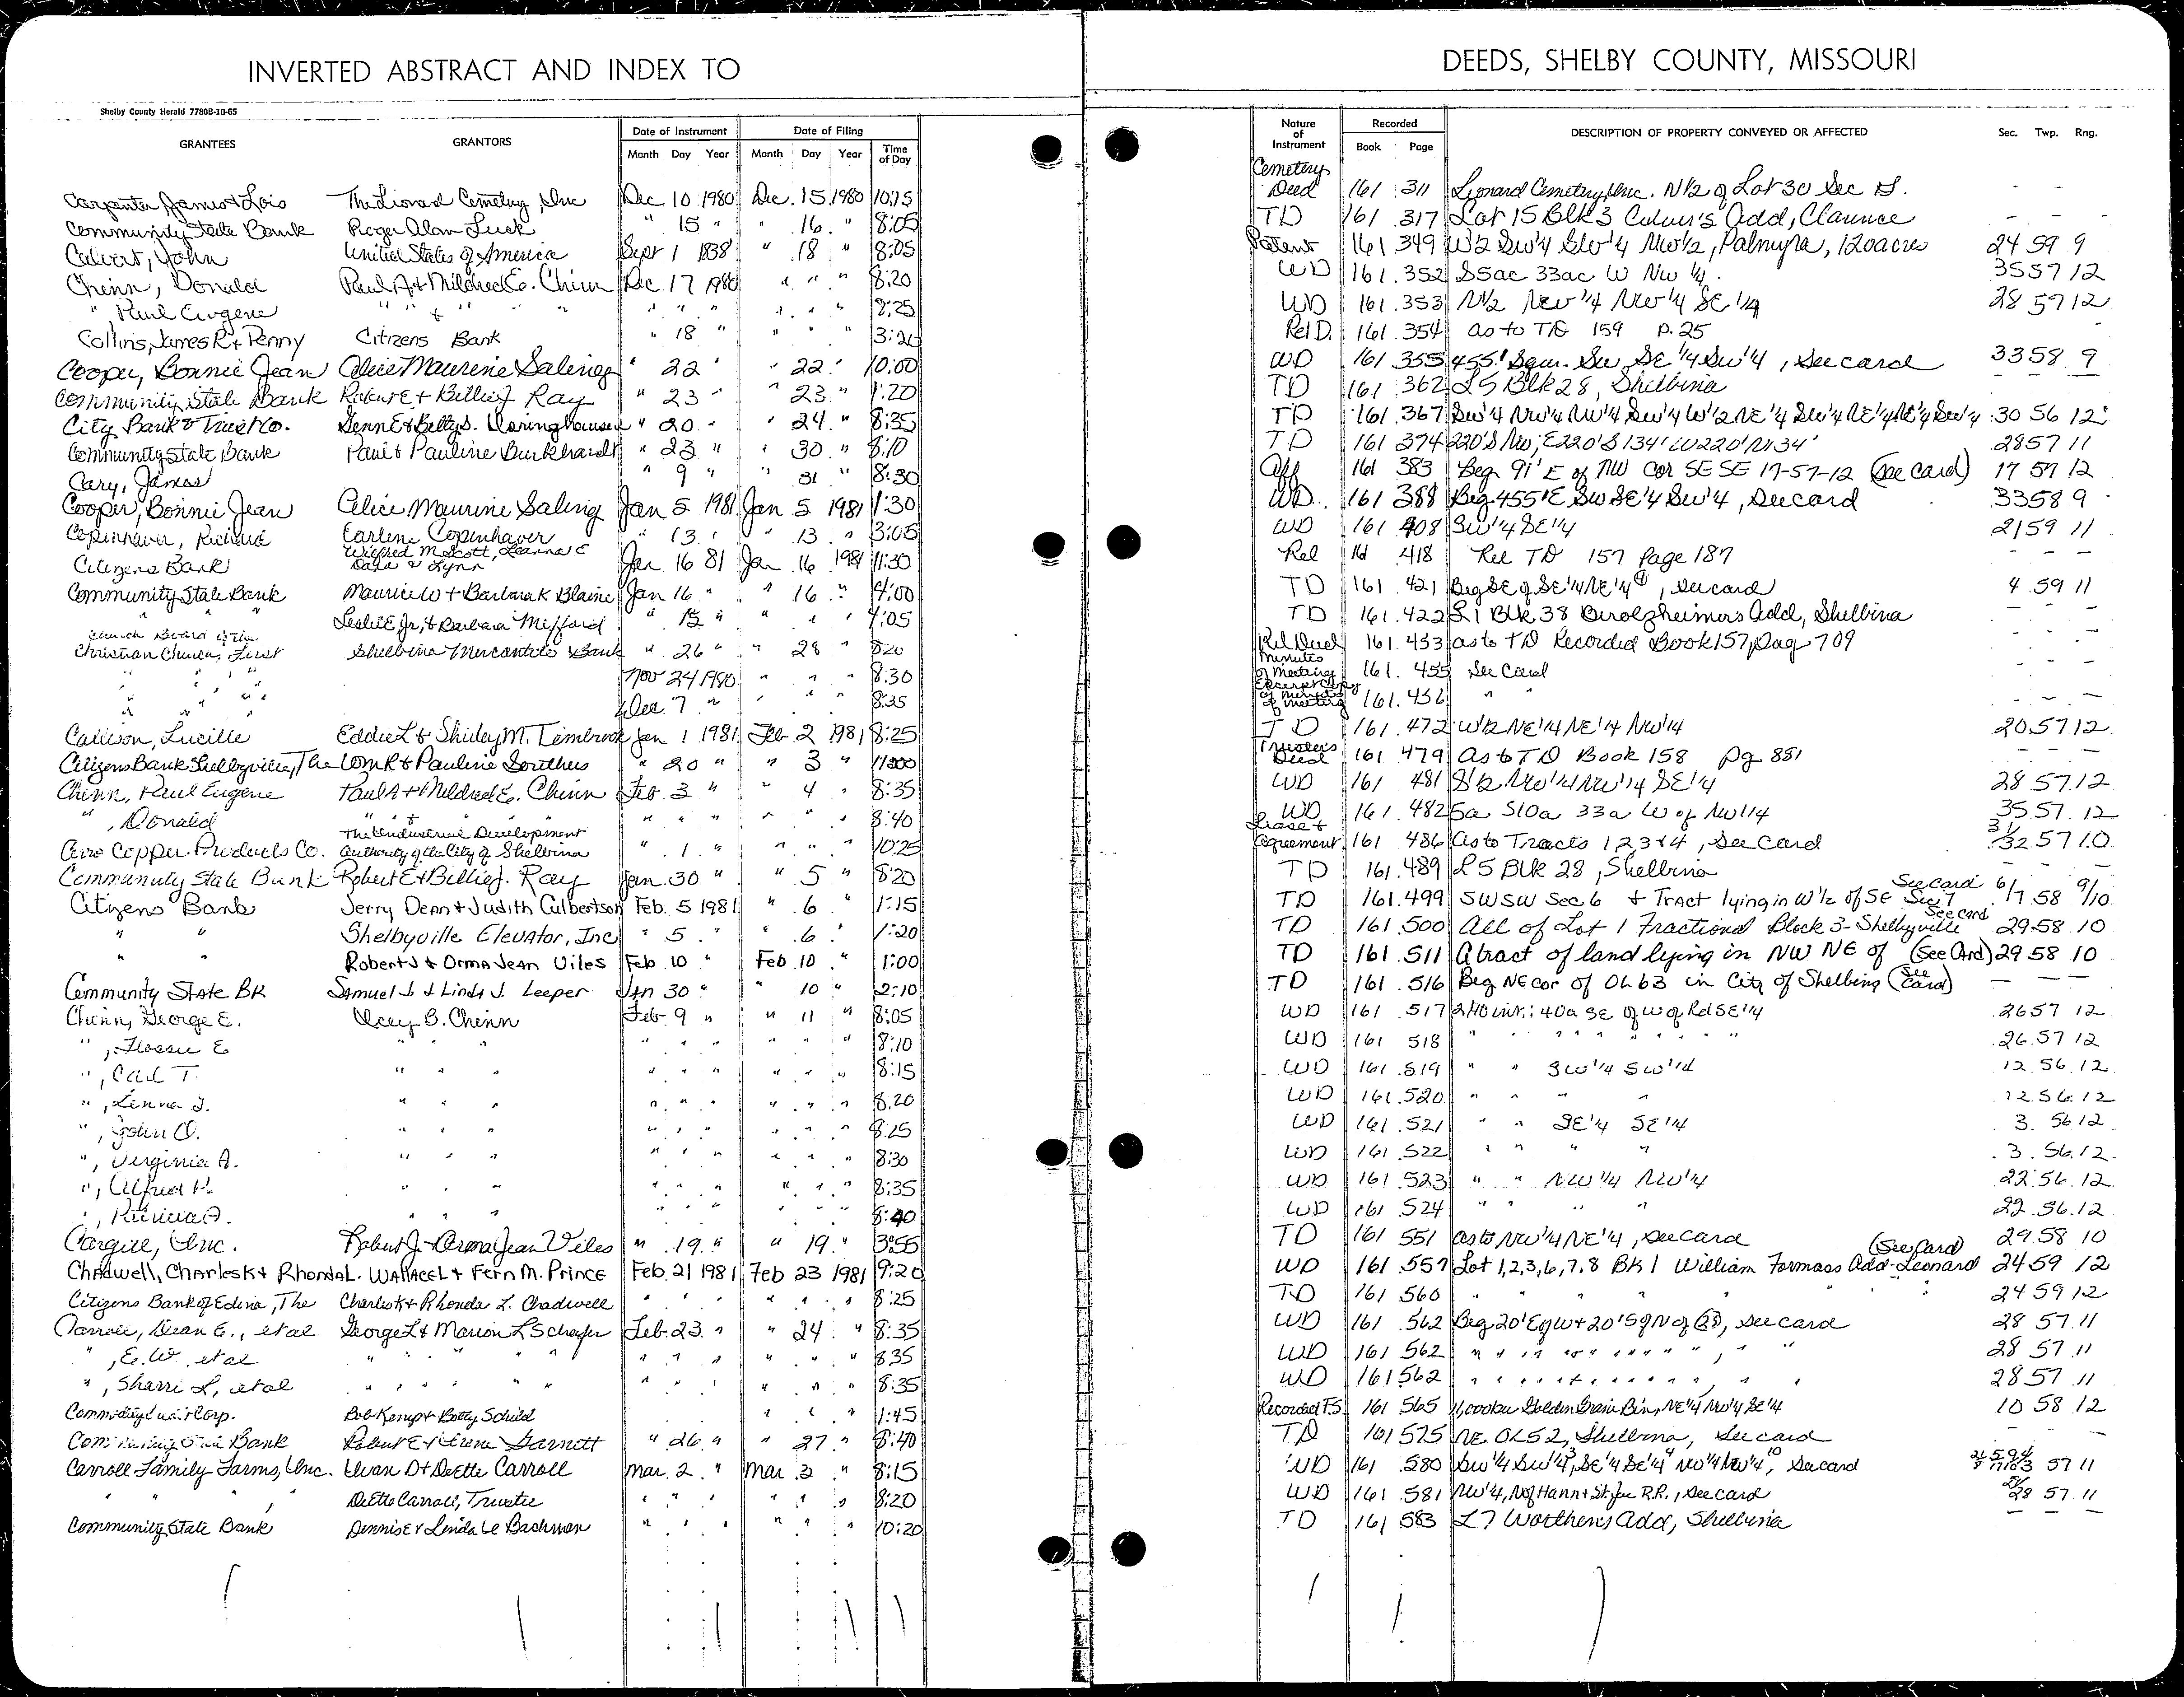 INVERTED ABSTRACT AND INDEX TO
DEEDS, SHELBY COUNTY, MISSOURI
Shelby County Herald 7780B-10-65
GRANTEES GRANTORS Date of Instrument Month Day Year Date of Filing Month Day Year Time of Day Nature of Instrument Recorded Book Page DESCRIPTION OF PROPERTY CONVEYED OR AFFECTED Sec. Twp. Rng.
Carpenter James & Lois The Leonard Cemetery, Inc Dec 10 1980 Dec. 15 1980 10:15 Cemetery Deed 161 311 Leonard Cemetery, Inc. N1/2 of Lot 30 Sec - -
Community State Bank Roger Alan Luck " 15 " " 16. " 8:05 TD 161 317 Lot 15 Blk 3 Culver's Add, Clarence - - -
Calvert, John United States of America Sept 1 1838 " 18 " 8:05 Patent 161 349 W1/2 SW1/4 , Palmyra, 120 acres 24 59 9
Chinn, Donald Paul A & Mildred E. Chinn Dec 17 1980 " " " 8:20 WD 161. 352 S5ac 33ac W NW 1/4. 35 57 12
" Paul Eugene " " + " " " " " " " 8:25 WD 161. 353 N1/2 NW 1/4 NW 1/4 SE 1/4 28 57 12
Collins, James R & Penny Citizens Bank " 18 " " " " 3:20 Rel D. 161. 354 as to TD 159 P. 25
Cooper, Bonnie Jean Alice Maurine Saling " 22 " " 22 " 10:00 WD 161. 355 455' Sqm. SW SE 1/4 SW 1/4 , see card 33 58 9
Community State Bank Robert E & Billie J Ray " 23 " " 23 " 1:20 TD 161. 362 L5 Blk 28, Shelbina - - -
City Bank & Trust Co. " 20 " 24. " 8:35 TD 161. 367 SW 1/4 NW 1/4 NW 1/4 SW 1/4 W 1/2 NE 1/4 SW 1/4 NE 1/4 SW 1/4 30 56 12
Community State Bank Paul & Pauline Burkhardt " 23 " " 30. " 8:10 TD 161 374 220'S NW; E220'S 134' W220'N134' 28 57 11
Cary, James " 9 " " 31 " 8:30 Aff 161 383 Beg 91' E of NW Cor SE SE 17-57-12 (see card) 17 57 12
Cooper, Bonnie Jean Alice Maurine Saling Jan 5 1981 Jan 5 1981 1:30 WD. 161 388 Beg 455'E SW SE 1/4 SW 1/4, see card 33 58 9
Copenhaver, Richard Earlene Copenhaver " 13. " " 13. " 3:05 WD 161 408 SW 1/4 SE 1/4 21 59 11
Citizens Bank Wilfred M Scott, Leanna E Dana & Lynn Jan. 16 81 Jan. 16 1981 11:30 Rel 161 .418 Rel TD 157 Page 187 - - -
Community State Bank Maurice W & Barbara K Blaine Jan 16. " " 16 " 4:00 TD 161 .421 Beg SE of SE 1/4 NE 1/4 , see card 4 59 11
" " " Leslie E Jr, & Barbara Mifford " 15 " " " " 4:05 TD 161. 422 L1 Blk 38 Birolzheimers Add, Shelbina - - -
Church Board of the Christian Church, First Shelbina Mercantile Bank " 26 " " 28 " 8:20 Rel Deed 161. 453 as to TD Recorded Book 157, Page 709 - - -
" " " Nov 24 1980. " " " 8:30 Minutes of Meeting 161. 455 See Card
" " " & Dec. 7 " " " " 8:35 Excerpt Copy of Minutes of Meeting 161. 456 " " - - -
Callison, Lucille Eddie L & Shirley M. Timbrook Jan 1 1981 Feb. 2 1981 8:25 TD 161. 472 W1/2 NE 1/4 NE 1/4 NW 1/4 20. 57. 12.
Citizens Bank Shelbyville, The Wm R & Pauline Southers " 20 " " 3 " 11:00 Trustee's Deed 161 479 As to TD Book 158 pg 881 - - -
Chinn, Paul Eugene Paul A & Mildred E. Chinn Feb 3 " " 4 " 8:35 WD 161 481 S1/2 NW 1/4 NW 1/4 SE 1/4 28 57. 12
" , Donald " " & " " " " " " " 8:40 WD 161. 482 5a S10a 33a W of NW 1/4 35 57. 12
Cerro Copper Products Co. The Industrial Development Authority of the City of Shelbina " 1 " " " " 10:25 Lease & Agreement 161 486 as to Tracts 1 2 3 & 4 , see card 31/32. 57. 10
Community State Bank Robert E & Billie J. Ray Jan. 30. " " 5 " 8:20 TD 161. 489 L5 Blk 28, Shelbina - - -
Citizens Bank Jerry Dean & Judith Culbertson Feb. 5 1981 " 6 " 1:15 TD 161. 499 SW SW Sec 6 & Tract lying in W 1/2 of SE Sec 7 See card 6/7. 58 9/10
" " Shelbyville Elevator, Inc " 5 . " .6 " 1:20 TD 161. 500 All of Lot 1 Fractional Block 3- Shelbyville See card 29. 58. 10
" " Robert J & Orma Jean Viles Feb. 10 " Feb. 10 " 1:00 TD 161. 511 A tract of land lying in NW NE of (See Card) 29 58 10
Community State Bk Samuel J. & Linda J. Leeper Jan 30 " " 10 " 2:10 TD 161 .516 Beg NE cor of OL 63 in City of Shelbina (See Card) — —
Chinn, George E. B. Chinn Feb. 9 " " 11 " 8:05 WD 161 .517 2/40 int.: 40a SE of W of Rd SE 1/4 26 57 12
" , Flossie E " " " " " " " " " 8:10 WD 161 518 " " " " " " " 26. 57 12
" , Carl T. " " " " " " " " " 8:15 WD 161. 519 " " SW 1/4 SW 1/4 12. 56. 12
" , Linna J. " " " " " " " " " 8:20 WD 161. 520 " " " " 12. 56. 12
" , John O. " " " " " " " " " 8:25 WD 161. 521 " " SE 1/4 SE 1/4 3. 56 12
" , Virginia A. " " " " " " " " " 8:30 WD 161. 522 " " " " 3. 56. 12
" , Alfred H. " " " " " " " " " 8:35 WD 161. 523 " " NW 1/4 NW 1/4 22. 56. 12
" , Patricia A. " " " " " " " " " 8:40 WD 161 .524 " " " " 22. 56. 12
Cargill, Inc. Robert J. & Orma Jean Viles " .19. " " 19. " 3:55 TD 161 551 as to NW 1/4 NE 1/4, see card 29. 58 10
Chadwell, Charles K & Rhonda L. Wallace L & Fern M. Prince Feb. 21 1981 Feb 23 1981 9:20 WD 161 .557 Lot 1, 2, 3, 6, 7, 8 BK 1 William Formans Add-Leonard (See Card) 24 59 12
Citizens Bank of Edina, The Charles K & Rhonda L. Chadwell " " " " " " 8:25 TD 161 560 " " " " " 24 59 12
Carroll, Dean E., et al George L & Marion L Schafer Feb. 23. " " 24 " 8:35 WD 161 .562 Beg 20'E of W & 20'S of N of 28, see card 28 57. 11
" , E.W. et al. " " " " " " " " " 8:35 WD 161 562 " " " " " " " 28 57 11
" , Sharri L, et al " " " " " " " " " 8:35 WD 161 562 " " " " " " " 28 57 11
Commodity Credit Corp. Bob Kemp & Betty Schild " " " 1:45 Recorded F.S. 161 565 11,000bu Golden Grain Bin, NE 1/4 NW 1/4 SE 1/4 10 58 12
Community State Bank Robert E & Irene Garnett " 26 " " 27 " 8:40 TD 161 575 NE OL 52, Shelbina, see card — — —
Carroll Family Farms, Inc. Ivan D & DeEtte Carroll Mar. 2. " Mar. 3 " 8:15 WD 161 .580 SW 1/4 SW 1/4 3, SE 1/4 SE 1/4 4 NW 1/4 NW 1/4 10, see card 57 11
" " " DeEtte Carroll, Trustee " " " " " " 8:20 WD 161 .581 NW 1/4, N of Hann & St Joe R.R., see card 28 57. 11
Community State Bank Dennis E & Linda Le Bachman " " " " " " 10:20 TD 161 583 L7 Worthens Add, Shelbina — — —